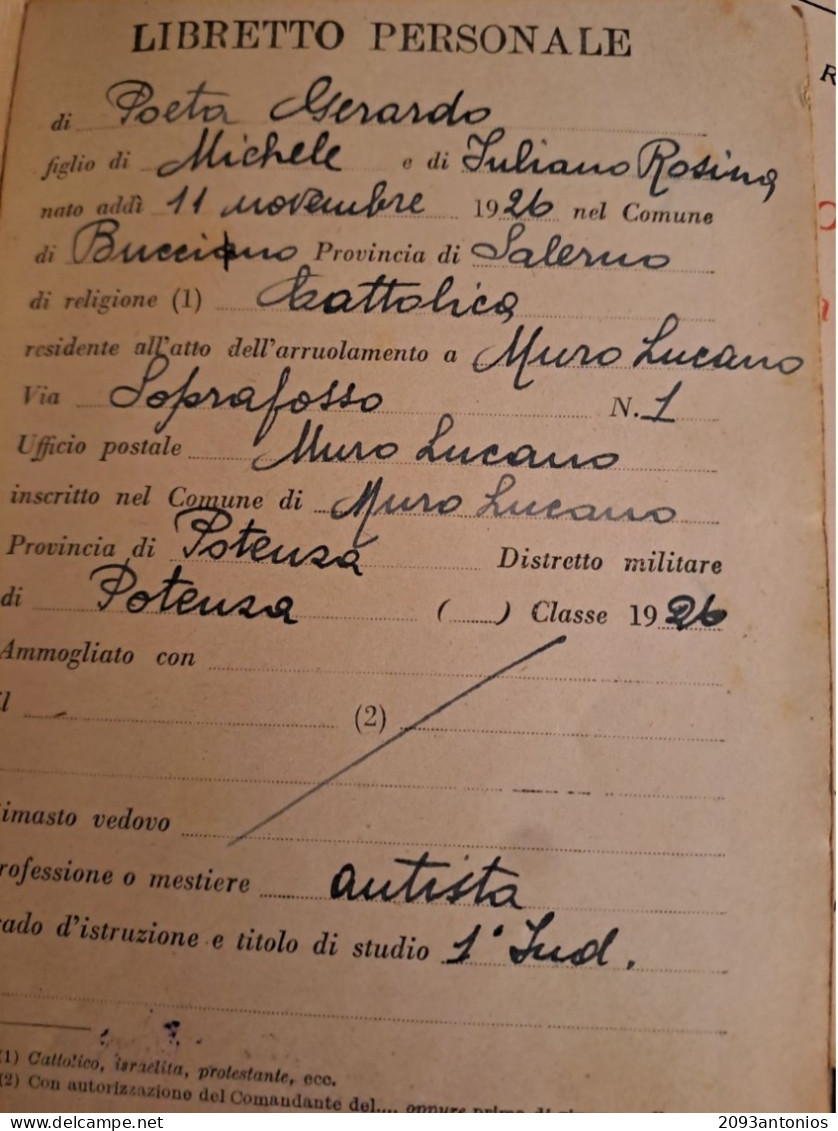 LIBRETTO PERSONALE
R
di Poeta Gerardo
figlio di Michele e di Iuliano Rosina
nato addì 11 novembre 1926 nel Comune
di Buccino Provincia di Salerno
di religione (1) Cattolica
residente all'atto dell'arruolamento a Muro Lucano
Via Soprafosso N. 1
Ufficio postale Muro Lucano
inscritto nel Comune di Muro Lucano
Provincia di Potenza Distretto militare
di Potenza (......) Classe 1926
Ammogliato con
il (2)
imasto vedovo
rofessione o mestiere autista
ado d'istruzione e titolo di studio 1ª Ind.
(1) Cattolico, israelita, protestante, ecc.
(2) Con autorizzazione del Comandante del.... oppure prima di
2093antonios